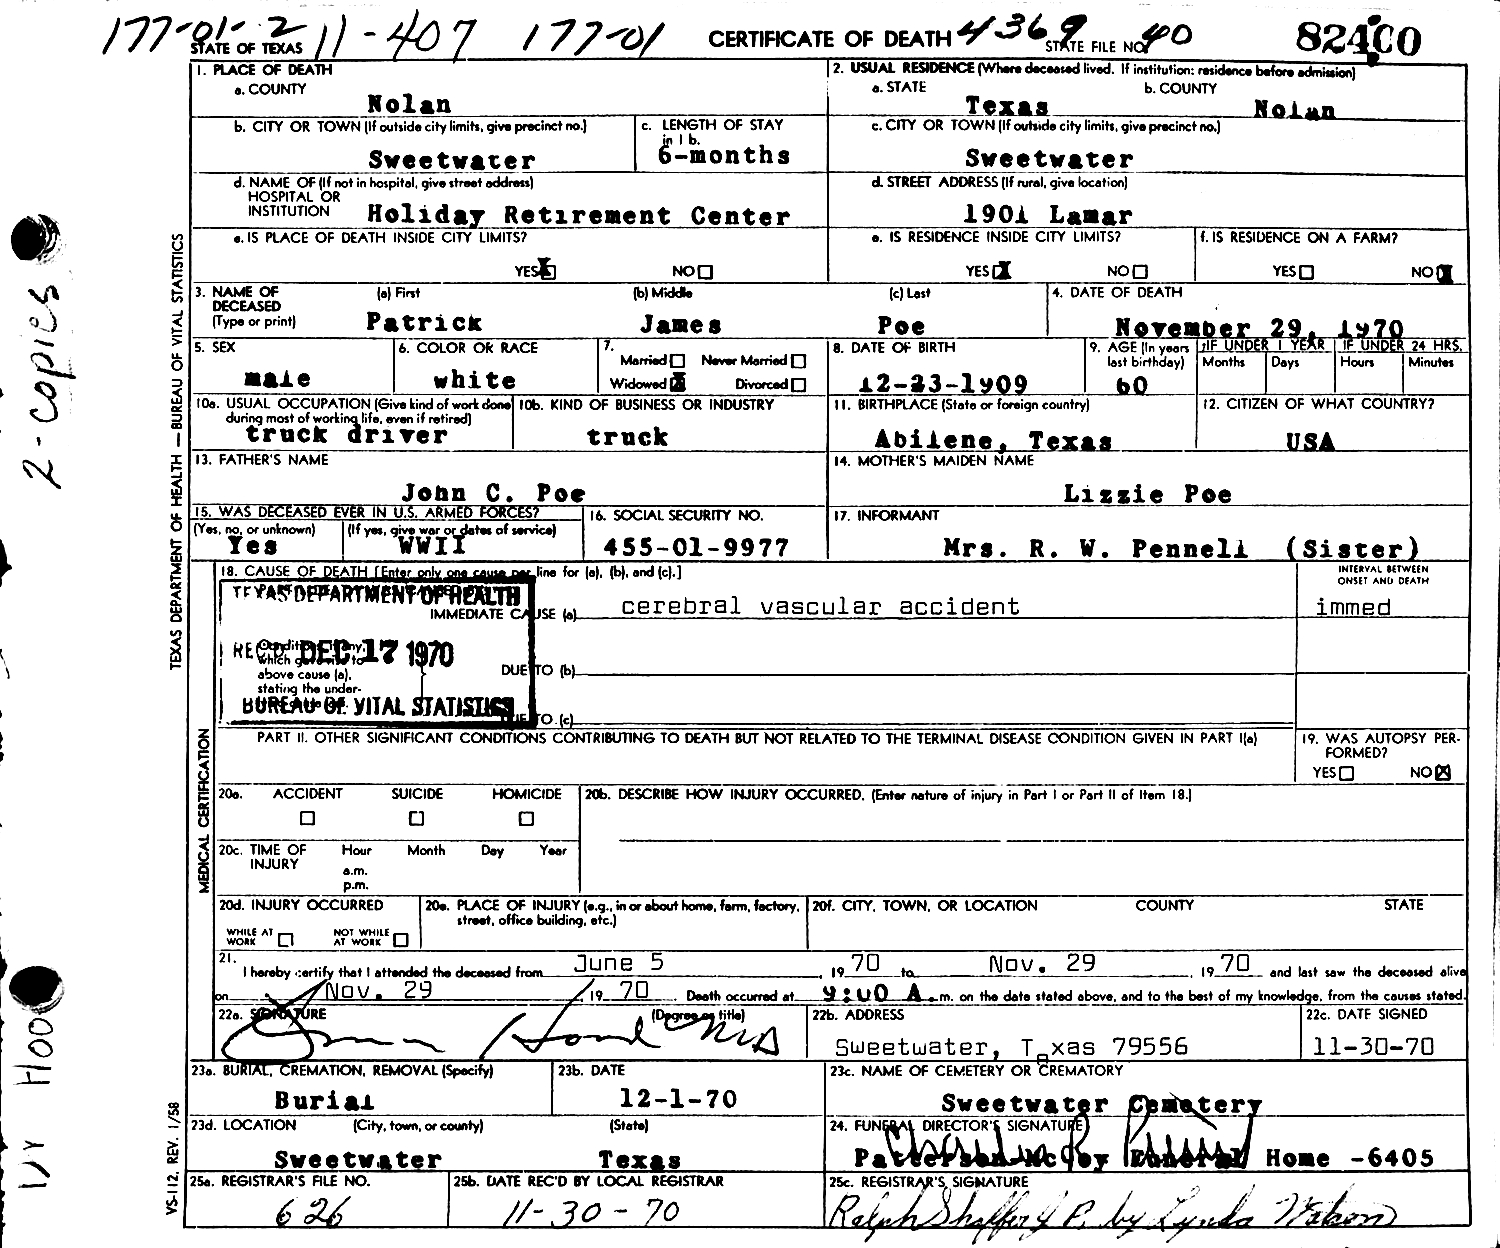 177-01-2 11-407 177-01 CERTIFICATE OF DEATH 4369 82400
STATE OF TEXAS STATE FILE NO. 40
1. PLACE OF DEATH 2. USUAL RESIDENCE (Where deceased lived. If institution: residence before admission)
a. COUNTY a. STATE b. COUNTY
Nolan Texas Nolan
b. CITY OR TOWN (If outside city limits, give precinct no.) c. LENGTH OF STAY in 1 b. c. CITY OR TOWN (If outside city limits, give precinct no.)
Sweetwater 6-months Sweetwater
d. NAME OF (If not in hospital, give street address) d. STREET ADDRESS (If rural, give location)
HOSPITAL OR
INSTITUTION Holiday Retirement Center 1901 Lamar
e. IS PLACE OF DEATH INSIDE CITY LIMITS? e. IS RESIDENCE INSIDE CITY LIMITS? f. IS RESIDENCE ON A FARM?
YES NO YES NO YES NO
3. NAME OF DECEASED (Type or print) (a) First (b) Middle (c) Last 4. DATE OF DEATH
Patrick James Poe November 29, 1970
5. SEX 6. COLOR OR RACE 7. Married Never Married 8. DATE OF BIRTH 9. AGE (In years last birthday) IF UNDER 1 YEAR IF UNDER 24 HRS.
Months Days Hours Minutes
male white Widowed Divorced 12-23-1909 60
10a. USUAL OCCUPATION (Give kind of work done during most of working life, even if retired) 10b. KIND OF BUSINESS OR INDUSTRY 11. BIRTHPLACE (State or foreign country) 12. CITIZEN OF WHAT COUNTRY?
truck driver truck Abilene, Texas USA
13. FATHER'S NAME 14. MOTHER'S MAIDEN NAME
John C. Poe Lizzie Poe
15. WAS DECEASED EVER IN U.S. ARMED FORCES? 16. SOCIAL SECURITY NO. 17. INFORMANT
(Yes, no, or unknown) (If yes, give war or dates of service)
Yes WWII 455-01-9977 Mrs. R. W. Pennell (Sister)
18. CAUSE OF DEATH [Enter only one cause per line for (a), (b), and (c).] INTERVAL BETWEEN ONSET AND DEATH
TEXAS DEPARTMENT OF HEALTH
IMMEDIATE CAUSE (a) cerebral vascular accident immed
REC'D DEC 17 1970
above cause (a), stating the under-
DUE TO (b)
BUREAU OF VITAL STATISTICS
DUE TO (c)
PART II. OTHER SIGNIFICANT CONDITIONS CONTRIBUTING TO DEATH BUT NOT RELATED TO THE TERMINAL DISEASE CONDITION GIVEN IN PART I(a) 19. WAS AUTOPSY PERFORMED?
YES NO
20a. ACCIDENT SUICIDE HOMICIDE 20b. DESCRIBE HOW INJURY OCCURRED. (Enter nature of injury in Part I or Part II of Item 18.)
20c. TIME OF INJURY Hour Month Day Year
a.m.
p.m.
20d. INJURY OCCURRED 20e. PLACE OF INJURY (e.g., in or about home, farm, factory, street, office building, etc.) 20f. CITY, TOWN, OR LOCATION COUNTY STATE
WHILE AT WORK NOT WHILE AT WORK
21. I hereby certify that I attended the deceased from June 5, 19 70 to Nov. 29, 19 70 and last saw the deceased alive
on Nov. 29 19 70. Death occurred at 9:00 A.m. on the date stated above, and to the best of my knowledge, from the causes stated.
22a. SIGNATURE (Degree or title) 22b. ADDRESS 22c. DATE SIGNED
MD Sweetwater, Texas 79556 11-30-70
23a. BURIAL, CREMATION, REMOVAL (Specify) 23b. DATE 23c. NAME OF CEMETERY OR CREMATORY
Burial 12-1-70 Sweetwater Cemetery
23d. LOCATION (City, town, or county) (State) 24. FUNERAL DIRECTOR'S SIGNATURE
Sweetwater Texas Patterson-McCoy Funeral Home -6405
25a. REGISTRAR'S FILE NO. 25b. DATE REC'D BY LOCAL REGISTRAR 25c. REGISTRAR'S SIGNATURE
626 11-30-70 Ralph Shaffer J.P. by Lynda Watson
TEXAS DEPARTMENT OF HEALTH — BUREAU OF VITAL STATISTICS
MEDICAL CERTIFICATION
VS-112, REV. 1/58
2-copies